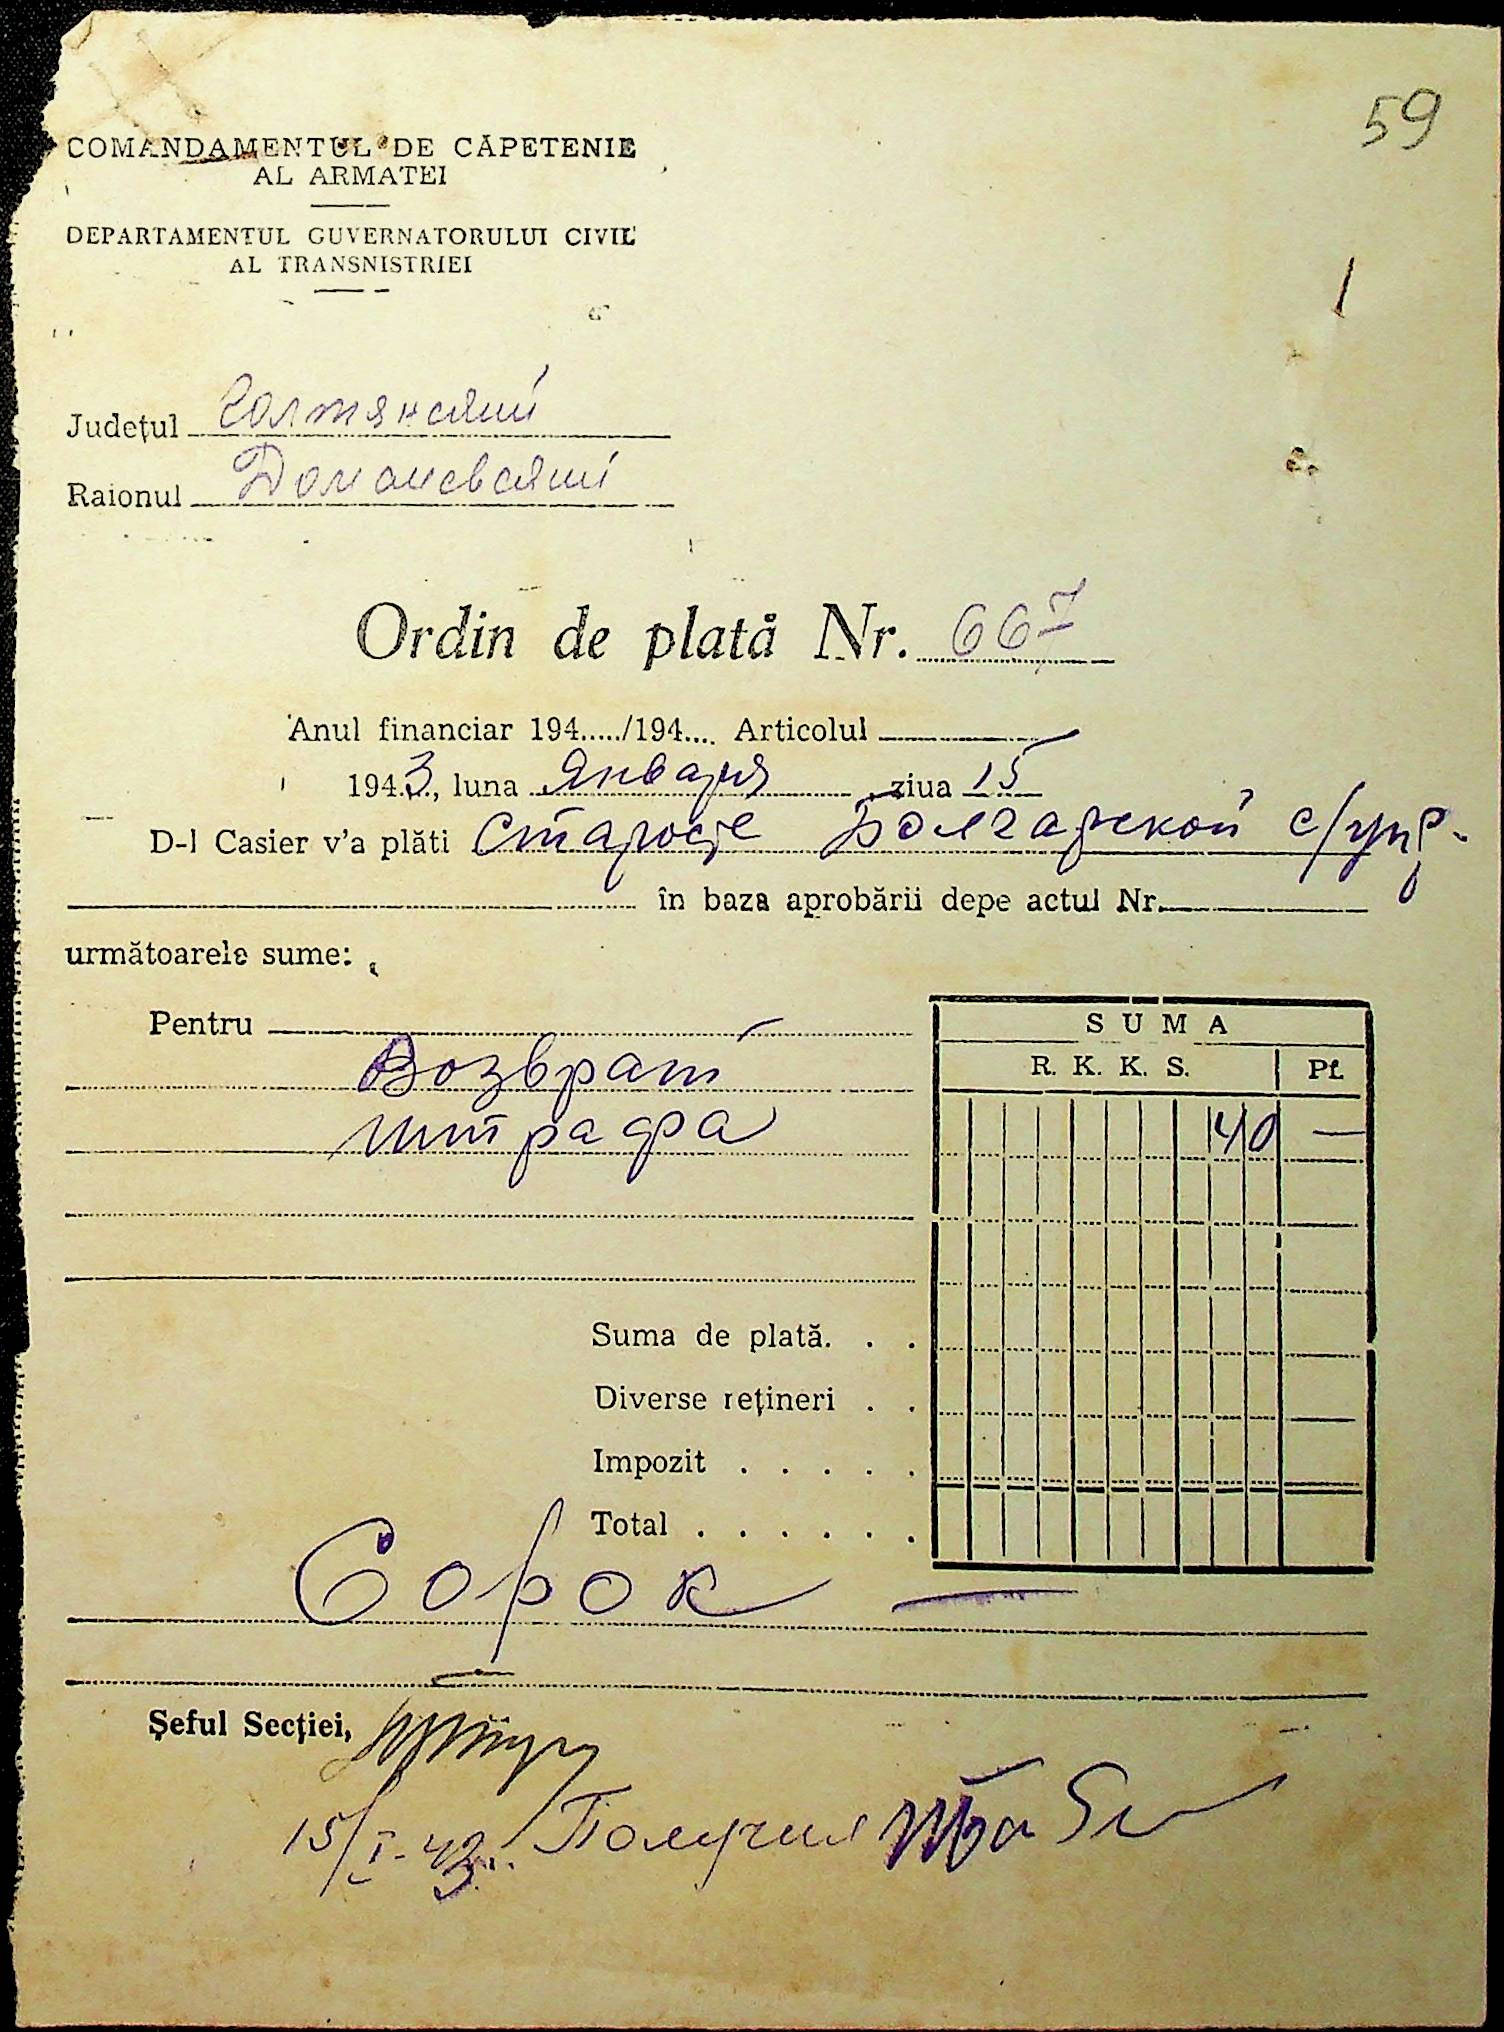 59
COMANDAMENTUL DE CĂPETENIE
AL ARMATEI
DEPARTAMENTUL GUVERNATORULUI CIVIL
AL TRANSNISTRIEI
Județul Голтянский
Raionul Доманевский
Ordin de plată Nr. 667
Anul financiar 194...../194.... Articolul
1943, luna Января, ziua 15
D-l Casier v'a plăti Старосте Болгарской с/упр.
în baza aprobării depe actul Nr.
următoarele sume:
Pentru
Возврат
штрафа
SUMA
R. K. K. S. Pf.
40 —
Suma de plată. . .
Diverse rețineri . .
Impozit . . . . .
Total . . . . . .
Сорок —
Șeful Secției,
15/I-43 Получил